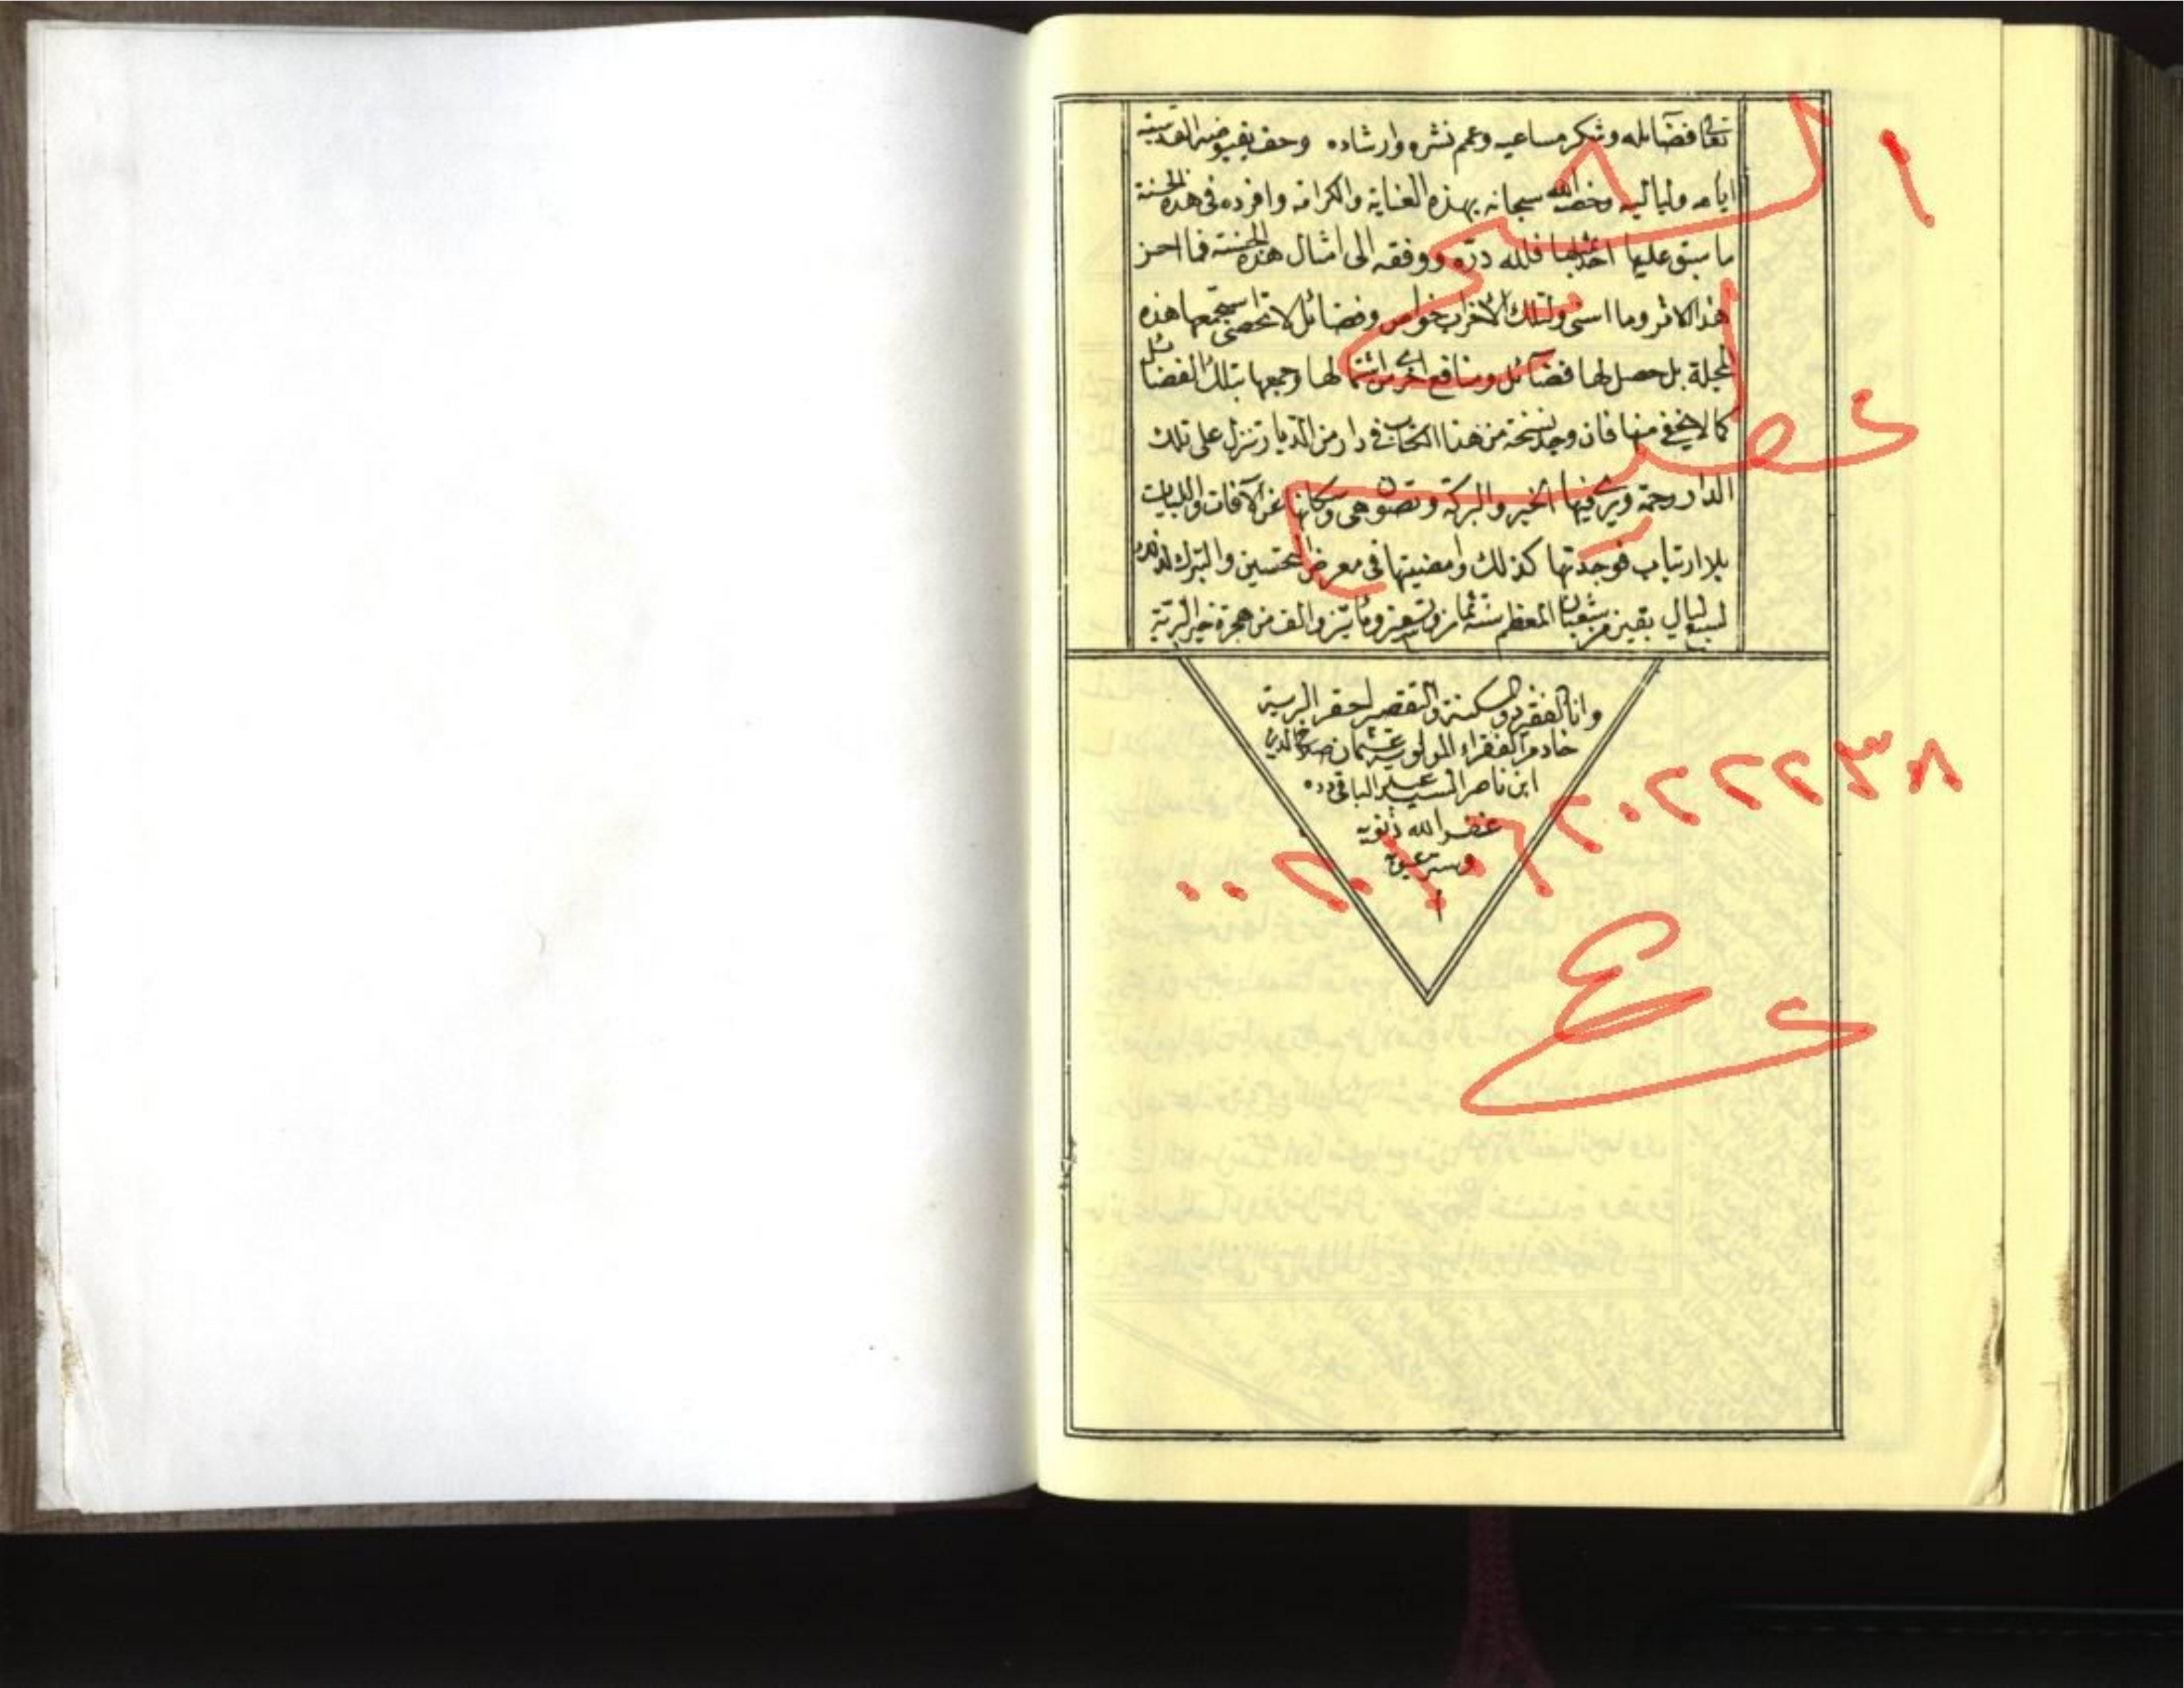 تعالى فضائله وشكر مساعيه وعمم نشره وارشاده وحف بفيوضه القدسية
ايامه ولياليه وخصه الله سبحانه بهذه العناية والكرامة وافرده في هذه الحسنة
ما سبق عليها احد فلله دره ووفقه الى امثال هذه الحسنة فما احسن
هذا الاثر وما اسنى ولتلك الاحزاب خواص وفضائل لا تحصى استجمعها هذه
المجلة بل حصل لها فضائل ومنافع اخرى من اشتمالها وجمعها بتلك الفضائل
كما لا يخفى منها فان وجد نسخة من هذا الكتاب في دار من الديار تنزل على تلك
الدار رحمة ويرى فيها الخير والبركة وتصون هى وسكانها عن الآفات والبليات
بلا ارتياب فوجدتها كذلك وامضيتها فى معرض التحسين والتبرك
لسبع ليال بقين من شعبان المعظم سنة ثمان وتسعين ومائتين والف من هجرة خير البرية
وانا الفقير ذو المسكنة والتقصير احقر البرية
خادم الفقراء المولوية عثمان صلاح الدين
ابن ناصر السيد عبد الباقى دده
غفر الله ذنوبه
وستر عيوبه
الشيخ
عطية
٠٠٢٠١٠٦٢٠٢٢٢٣٨